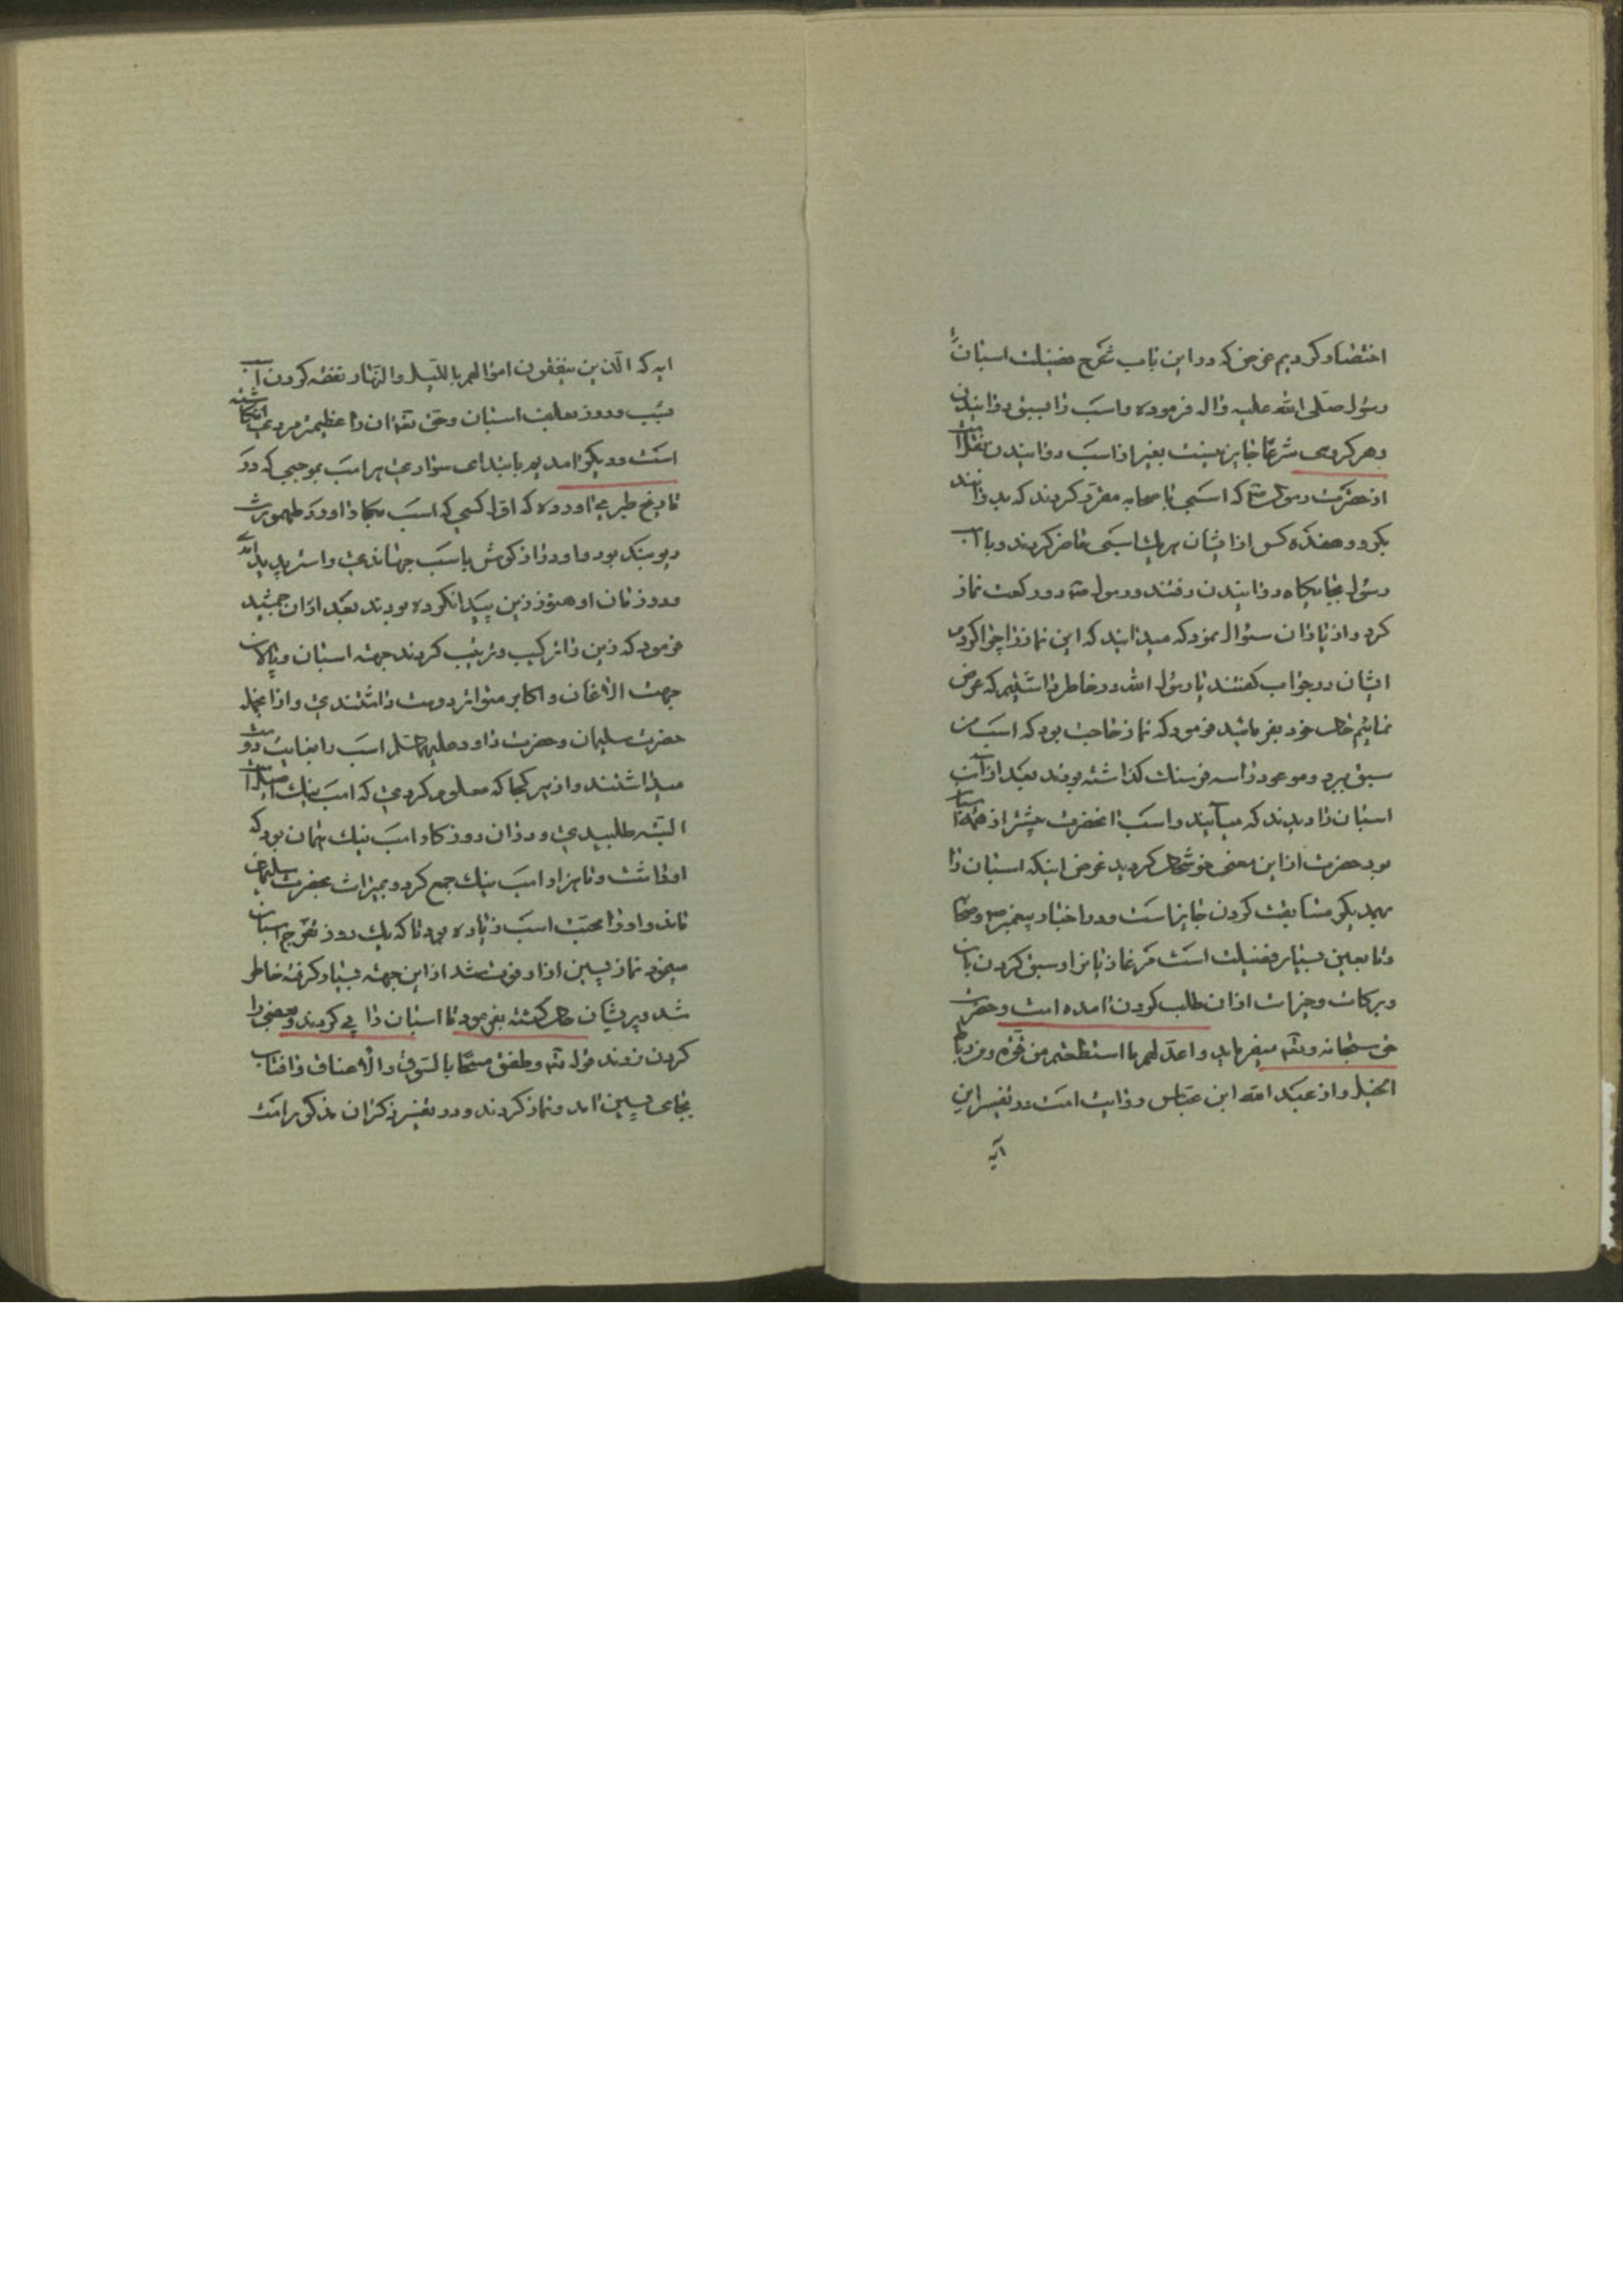 اختصار کردیم غرض که در این باب شرح فضیلت اسبان را
رسول صلی الله علیه واله فرموده و اسب را بسبق دوانیدن
و هر کروی شرعا جایز نیست بغیر از اسب دوانیدن نقلست
از حضرت رسول ص که اسبی با صحابه مقرر کردند که بدوانند
بکرو و هفده کس از ایشان هر یک اسبی حاضر کردند و با آن
رسول بجایگاه دوانیدن رفتند و رسول ص دو رکعت نماز
کرد و از یاران سئوال نمود که میدانید که این نماز را چرا کردم
ایشان در جواب گفتند یا رسول الله در خاطر داشتیم که عرض
نمائیم خال خود بفرمائید فرمود که نماز حاجت بود که اسب من
سبق برد و موعود را سه فرسنک کذاشته بودند بعد از آن
اسبان را دیدند که میآیند و اسب انحضرت پیشتر از همه اسبان
بود حضرت از این معنی خوشحال کردید غرض اینکه اسبان را
بهمدیکر مسابقت کردن جایز است و در اخبار پیغمبر ص و صحابه
و تابعین بسیار فضیلت است مر غازیانرا و سبق کردن بان
و برکات و خیرات از ان طلب کردن امده است و حضرت
حق سبحانه وتعالی میفرماید واعدلهم ما استطعتم من قوة ومن رباط
الخیل و از عبد الله ابن عباس روایت است در تفسیر این
آیه
ایه که الذین ینفقون اموالهم باللیل والنهار نفقه کردن است
بشب و روز بعلف اسبان و حق تعالی ان را عظیم مزد
است دیکر امدیم بابتدای سواری بر اسب بموجبی که در
تاریخ طبری اورده که اول کسی که اسب بکار اورد طهمورث
دیوبند بود و او را از کوش با سب جهاندی و استر پدید امد
و در زمان او هنوز زین پیدا نکرده بودند بعد از ان جمشید
فرمود که زین را ترکیب و ترتیب کردند جهته اسبان و پالان
جهت الاغان و اکابر متواتر دوست داشتندی و از انجمله
حضرت سلیمان و حضرت داود علیهما السلام اسب را بغایت دوست
میداشتند و از هر کجا که معلوم کردی که اسب نیک
البته طلبیدی و در ان روزکار اسب نیک همان بود که
او داشت و تا هزار اسب نیک جمع کرد و بمیراث بحضرت سلیمان
ماند و او را محبت اسب زیاده بود تا که یک روز تفرج اسبان
مینمود نماز پسین از او فوت شد از این جهته بسیار کرفته خاطر
شد و پریشان حال کشته بفرمود تا اسبان را پی کردند و بعضی را
کردن زدند قوله تعالی وطفق مسحا بالسوق والاعناق و افتاب
بجای پسین امد و نماز کردند و در تفسیر ذکر ان مذکور است